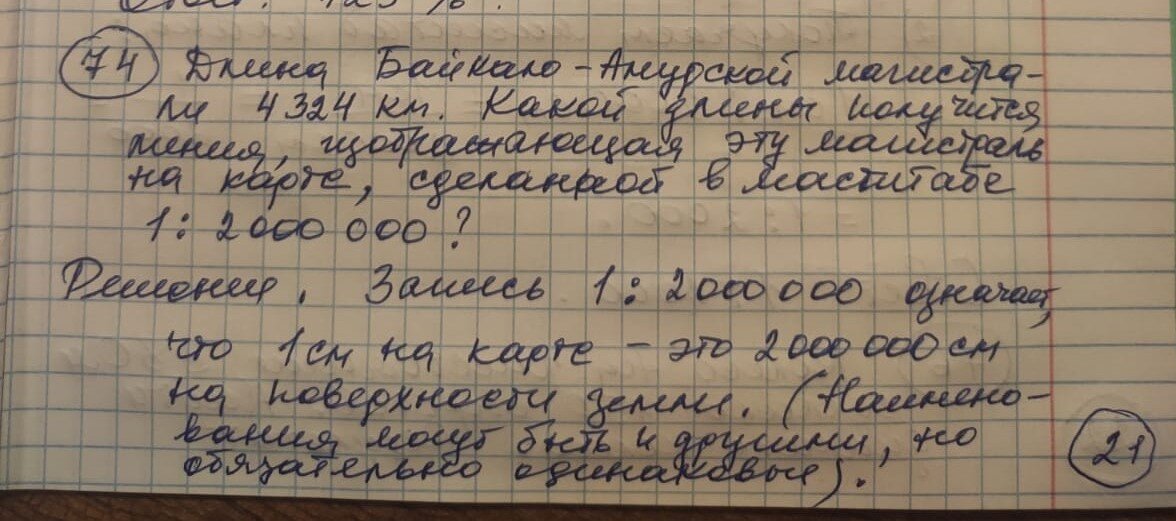 Ответ: 125 %.
74 Длина Байкало-Амурской магистра-
ли 4324 км. Какой длины получится
линия, изображающая эту магистраль
на карте, сделанной в масштабе
1 : 2 000 000 ?
Решение. Запись 1 : 2 000 000 означает,
что 1 см на карте – это 2 000 000 см
на поверхности земли. (Наимено-
вания могут быть и другими, но
обязательно одинаковые).
21